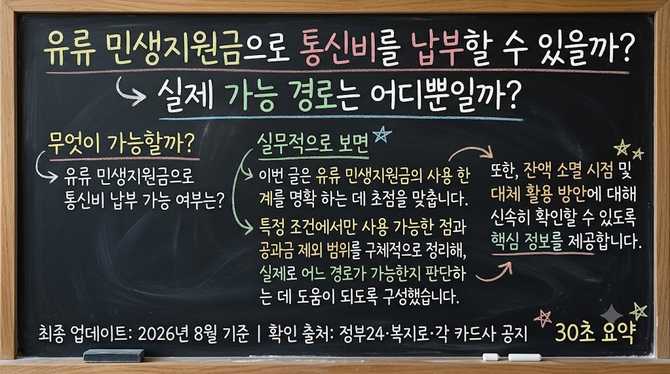 유류 민생지원금으로 통신비를 납부할 수 있을까?
실제 가능 경로는 어디뿐일까?
무엇이 가능할까?
유류 민생지원금으로
통신비 납부 가능 여부는?
실무적으로 보면
이번 글은 유류 민생지원금의 사용 한
계를 명확 하는 데 초점을 맞춥니다.
특정 조건에서만 사용 가능한 점과
공과금 제외 범위를 구체적으로 정리해,
실제로 어느 경로가 가능한지 판단하
는 데 도움이 되도록 구성했습니다.
또한, 잔액 소멸 시점 및
대체 활용 방안에 대해
신속히 확인할 수 있도록
핵심 정보를 제공합니다.
최종 업데이트: 2026년 8월 기준 | 확인 출처: 정부24·복지로·각 카드사 공지
30초 요약